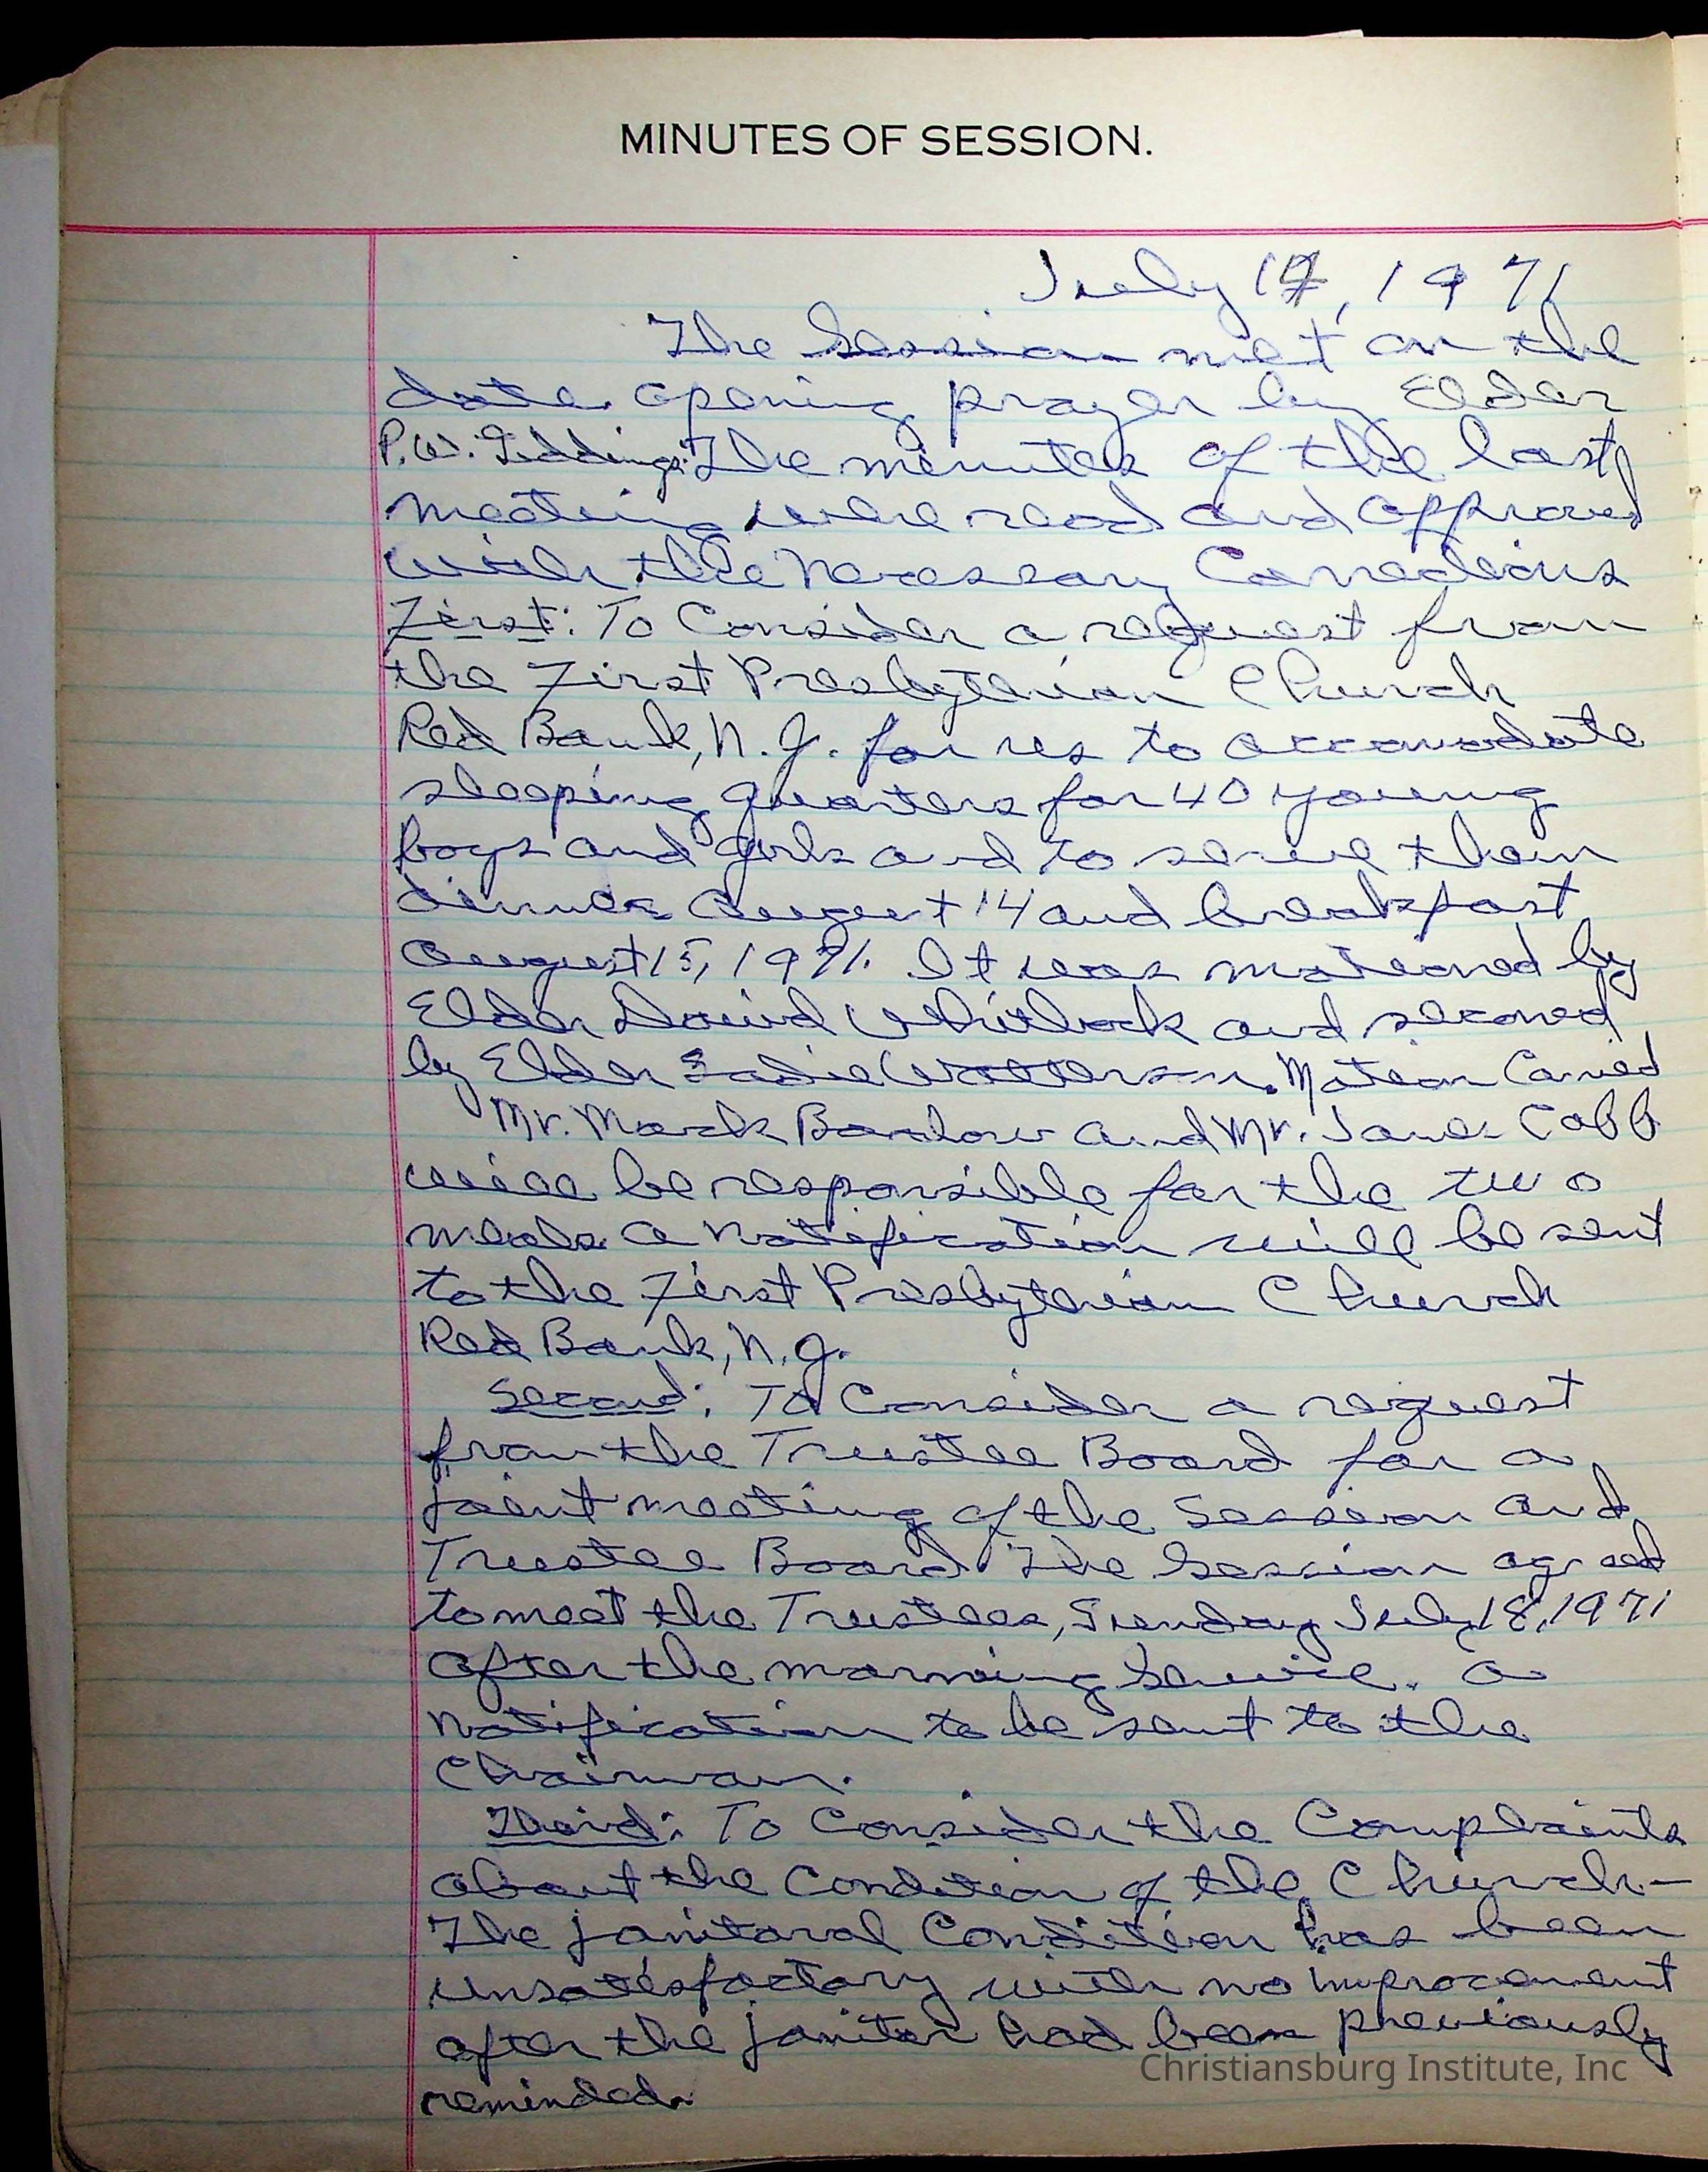 MINUTES OF SESSION.
July 17, 1971
The Session met on the
date opening prayer by Elder
P.W. Giddings. The minutes of the last
meeting were read and approved
with the necessary Corrections
First: To Consider a request from
the First Presbyterian Church
Red Bank, N.J. for us to accomodate
sleeping quarters for 40 young
boys and girls and to serve them
dinner August 14 and breakfast
August 15, 1971. It was motioned by
Elder David Whitlock and seconed
by Elder Sadie Watterson. Motion Carried
Mr. Mack Barlow and Mr. Cobb
will be responsible for the two
meals a notification will be sent
to the First Presbyterian Church
Red Bank, N.J.
Second: To Consider a request
from the Trustee Board for a
joint meeting of the Session and
Trustee Board. The Session agreed
to meet the Trustees, Sunday July 18, 1971
after the morning Service. a
notification to be sent to the
Chairman.
Third: To Consider the Complaints
about the Condition of the Church-
The janitoral Condition has been
unsatisfactory with no improvement
after the janitor had been previously
reminded.
Christiansburg Institute, Inc